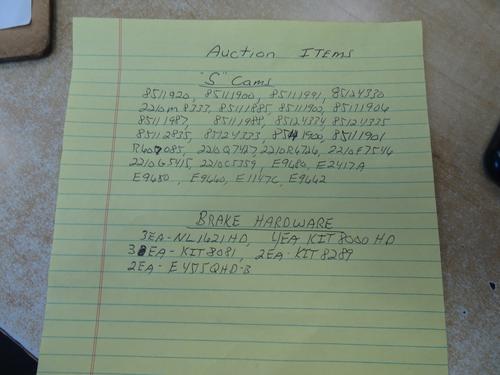 Auction ITEMS
"S" Cams
8511920, 85111900, 85111991, 85124330
2210M8333, 85111885, 85111902, 85111904
85111987, 85111988, 85124334, 85124335
85112835, 85124333, 85111900, 85111901
R607085, 2210Q7427, 2210R6726, 2210F7546
2210G5415, 2210C5359, E9680, E2417A
E9650, E9660, E1147C, E9662
BRAKE HARDWARE
3EA-NL1621HD, 4EA KIT8000HD
3EA-KIT8081, 2EA-KIT8289
2EA-E475QHD-B